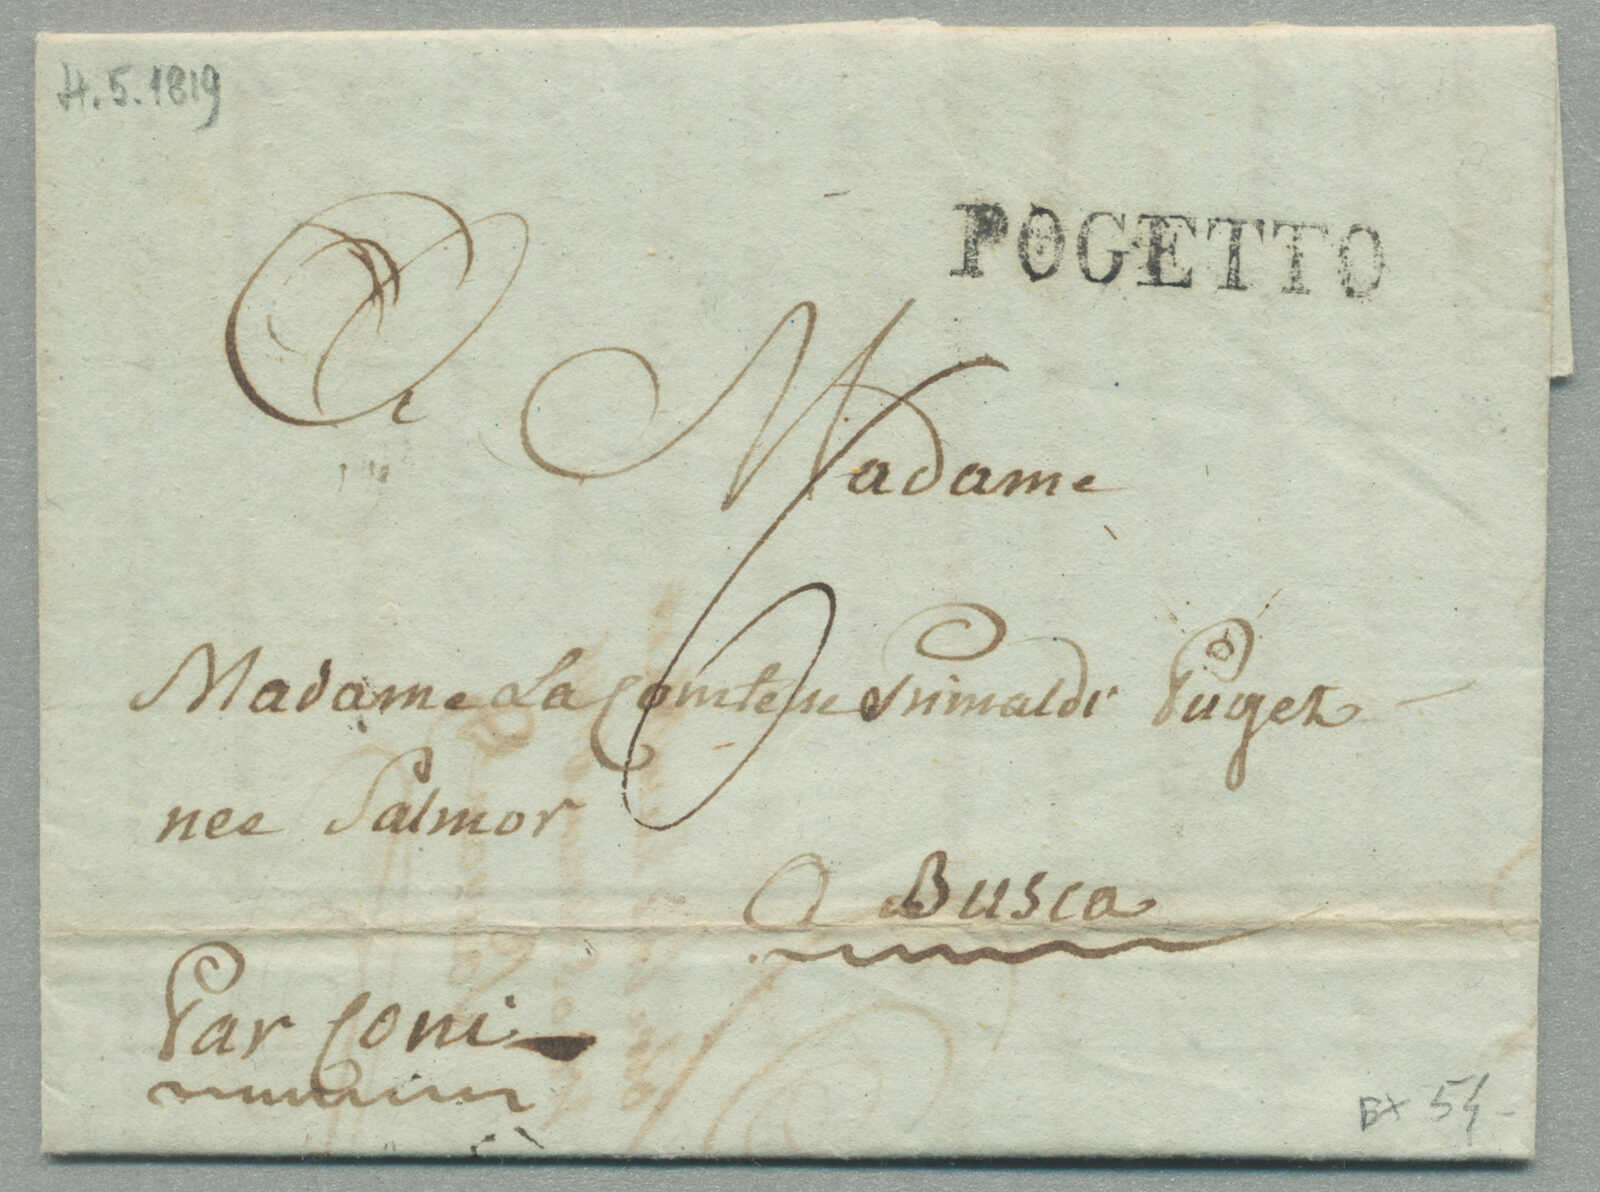 4.5.1819
POGETTO
A Madame
Madame La Comtesse Grimaldi Puget
nee Salmor
a Busca
Par Coni